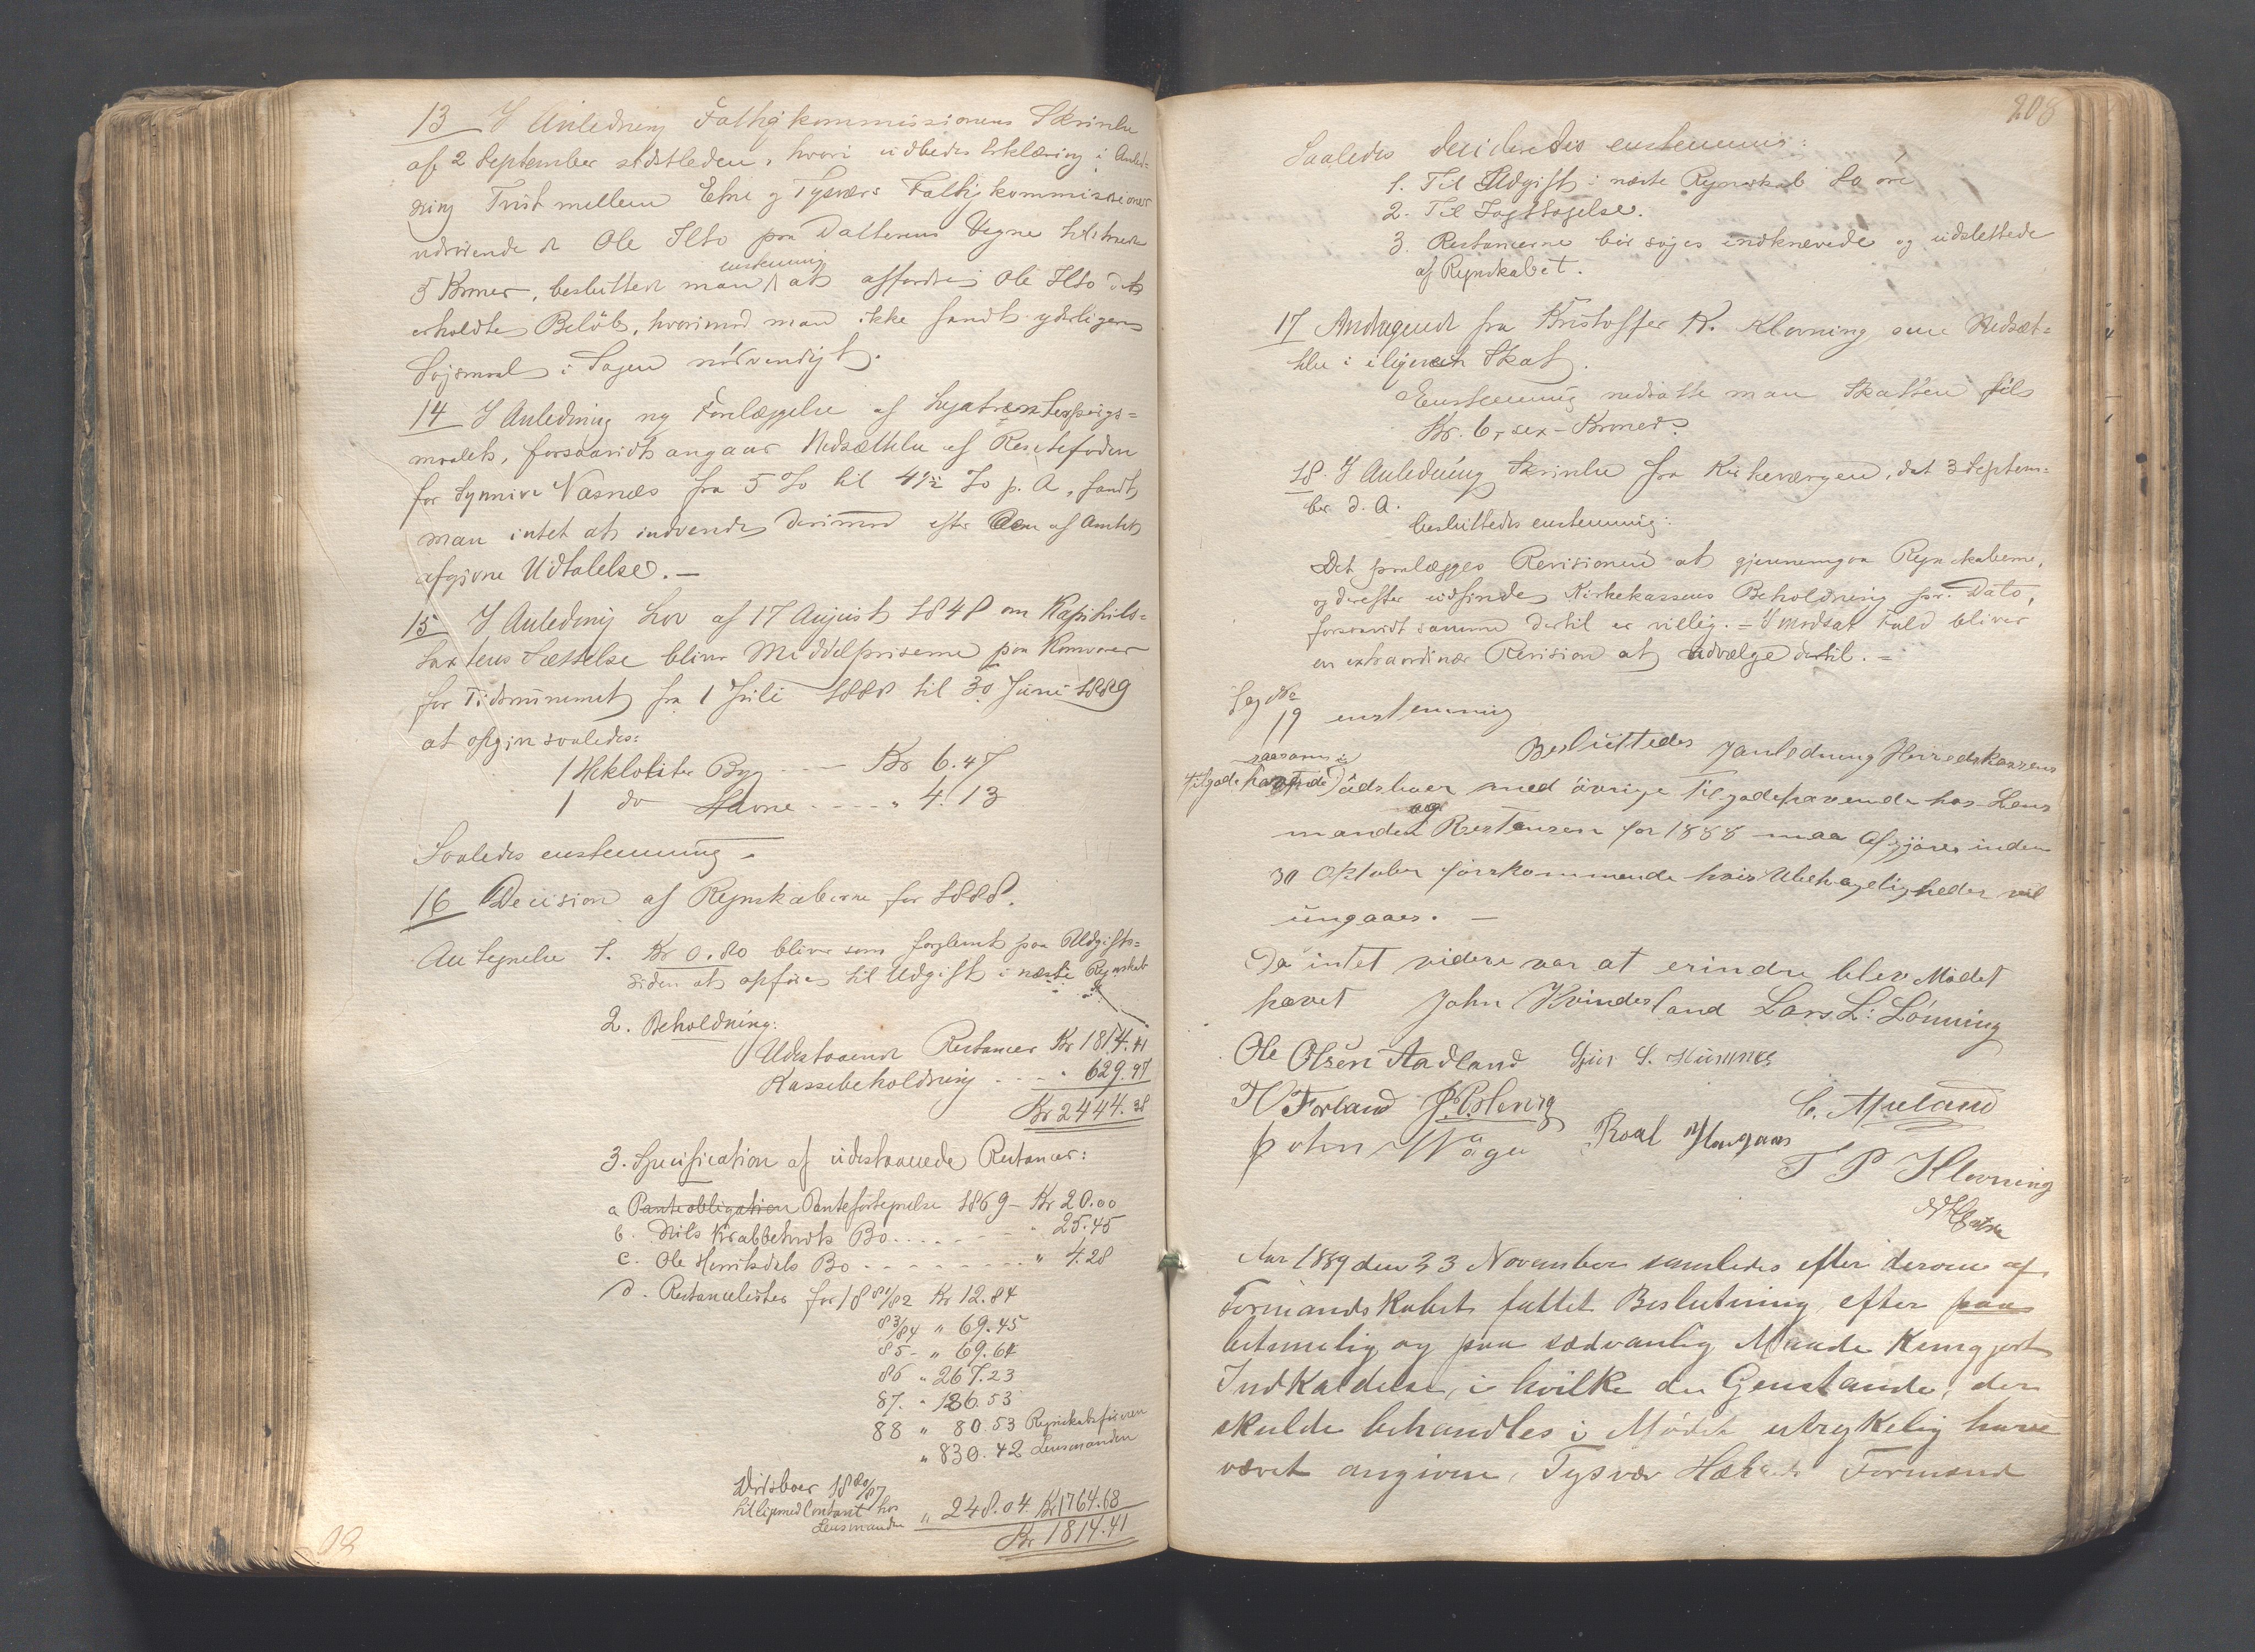 13 I Anledning Fattigkommissionens Skrivelse
af 2 September sidstleden, hvori udbedes Erklæring i Anled-
ning Tvist mellem Etne og Tysværs Fattigkommissioner
vedrørende Ole Ilto paa Datterens Vegne
5 Kroner, besluttede man enstemmig at affordre Ole Ilto det
erholdte Beløb, hvorimod man ikke fandt yderligere
Søjsmaal i Sagen nødvendigt.
14 I Anledning ny Forelæggelse af
maalet, forsaavidt angaar Nedsættelse af Rentefoden
for Synnive Vasnæs fra 5 % til 4½ % p. A, fandt
man intet at indvende derimod efter den af Amtet
afgivne Udtalelse. —
15 I Anledning Lov af 17 August 1848 om Kapitels-
taxtens Sættelse bliver Middelpriserne paa Kornvarer
for Tidsrummet fra 1 Juli 1888 til 30 Juni 1889
at opgive saaledes:
1 Hektoliter Byg - - - Kr 6.47
1 do Havre - - - - " 4.13
Saaledes enstemmig.
16 Decision af Regnskaberne for 1888.
Antegnelse 1. Kr 0.80 bliver som forglemt paa Udgifts-
siden at opføres til Udgift i næste Regnskab
2. Beholdning:
Udestaaende Restancer Kr 1814.41
Kassebeholdning - - - " 629.97
Kr 2444.38
3. Specification af udestaaende Restancer:
a Panteobligation Pantefortegnelse 1869 - Kr 20.00
b. Nils Krabbetveits Bo - - - - - " 25.45
c. Ole Henriksdals Bo - - - - - - - " 4.28
d. Restancelister for 18 81/82 Kr 12.84
83/84 " 69.45
85 - " 69.64
86 " 267.23
87. " 186.53
88 " 80.53 Regnskabsføreren
" 830.42 Lensmanden
18 80/87
hos
Lensmanden " 248.04 Kr 1764.68
Kr 1814.41
208
Saaledes decideredes enstemmig:
1. Til Udgift i næste Regnskab 80 øre
2. Til Iagttagelse.
3. Restancerne bør søges indkrævede og udslettede
af Regnskabet.
17 Andragende fra Kristoffer K. Klovning om Nedsæt-
telse i ilignet Skat.
Enstemmig nedsatte man Skatten til
Kr. 6, sex - Kroner.
18. I Anledning Skrivelse fra Kirkeværgen, dat 3 Septem-
ber d. A.
besluttedes enstemmig:
Det paalægges Revisionen at gjennemgaa Regnskaberne,
og derefter udfinde Kirkekassens Beholdning pr. Dato,
forsaavidt samme dertil er villig. - I modsat Fald bliver
en extraordinær Revision at udvælge dertil. -
Sag No
19 enstemmig
Besluttedes I anledning Herredskassens
tilgodehavende med øvrige tilgodehavende hos Lens
manden og Restansen for 1888 maa Afgjøres inden
30 Oktober førskommende hvis Ubehageligheder vil
ungaaes. —
Da intet videre var at erindre blev Mødet
hævet John Kvindesland Lars L: Lønning
Ole Olsen Aadland
H Førland
C. Apeland
John Vaage Roal Haugaas
T P Klovning
Aar 1889 den 23 November samledes efter derom af
Formandskabet fattet Beslutning, efter paa
betimelig og paa sædvanlig Maade Kungjort
IndKaldelse, i hvilke de Genstande, der
skulde behandles i Mødet utrykkelig have
været angivne, Tysvær Formænd